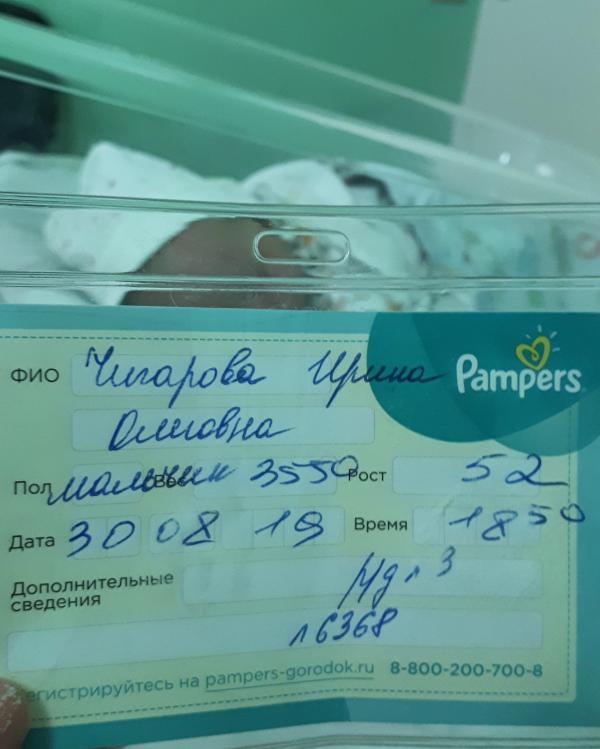 ФИО Чигарова Ирина
Pampers
Олиовна
Пол мальчик Вес 3550 Рост 52
Дата 30 08 19 Время 18 50
Дополнительные
сведения
№ 6368
егистрируйтесь на pampers-gorodok.ru 8-800-200-700-8